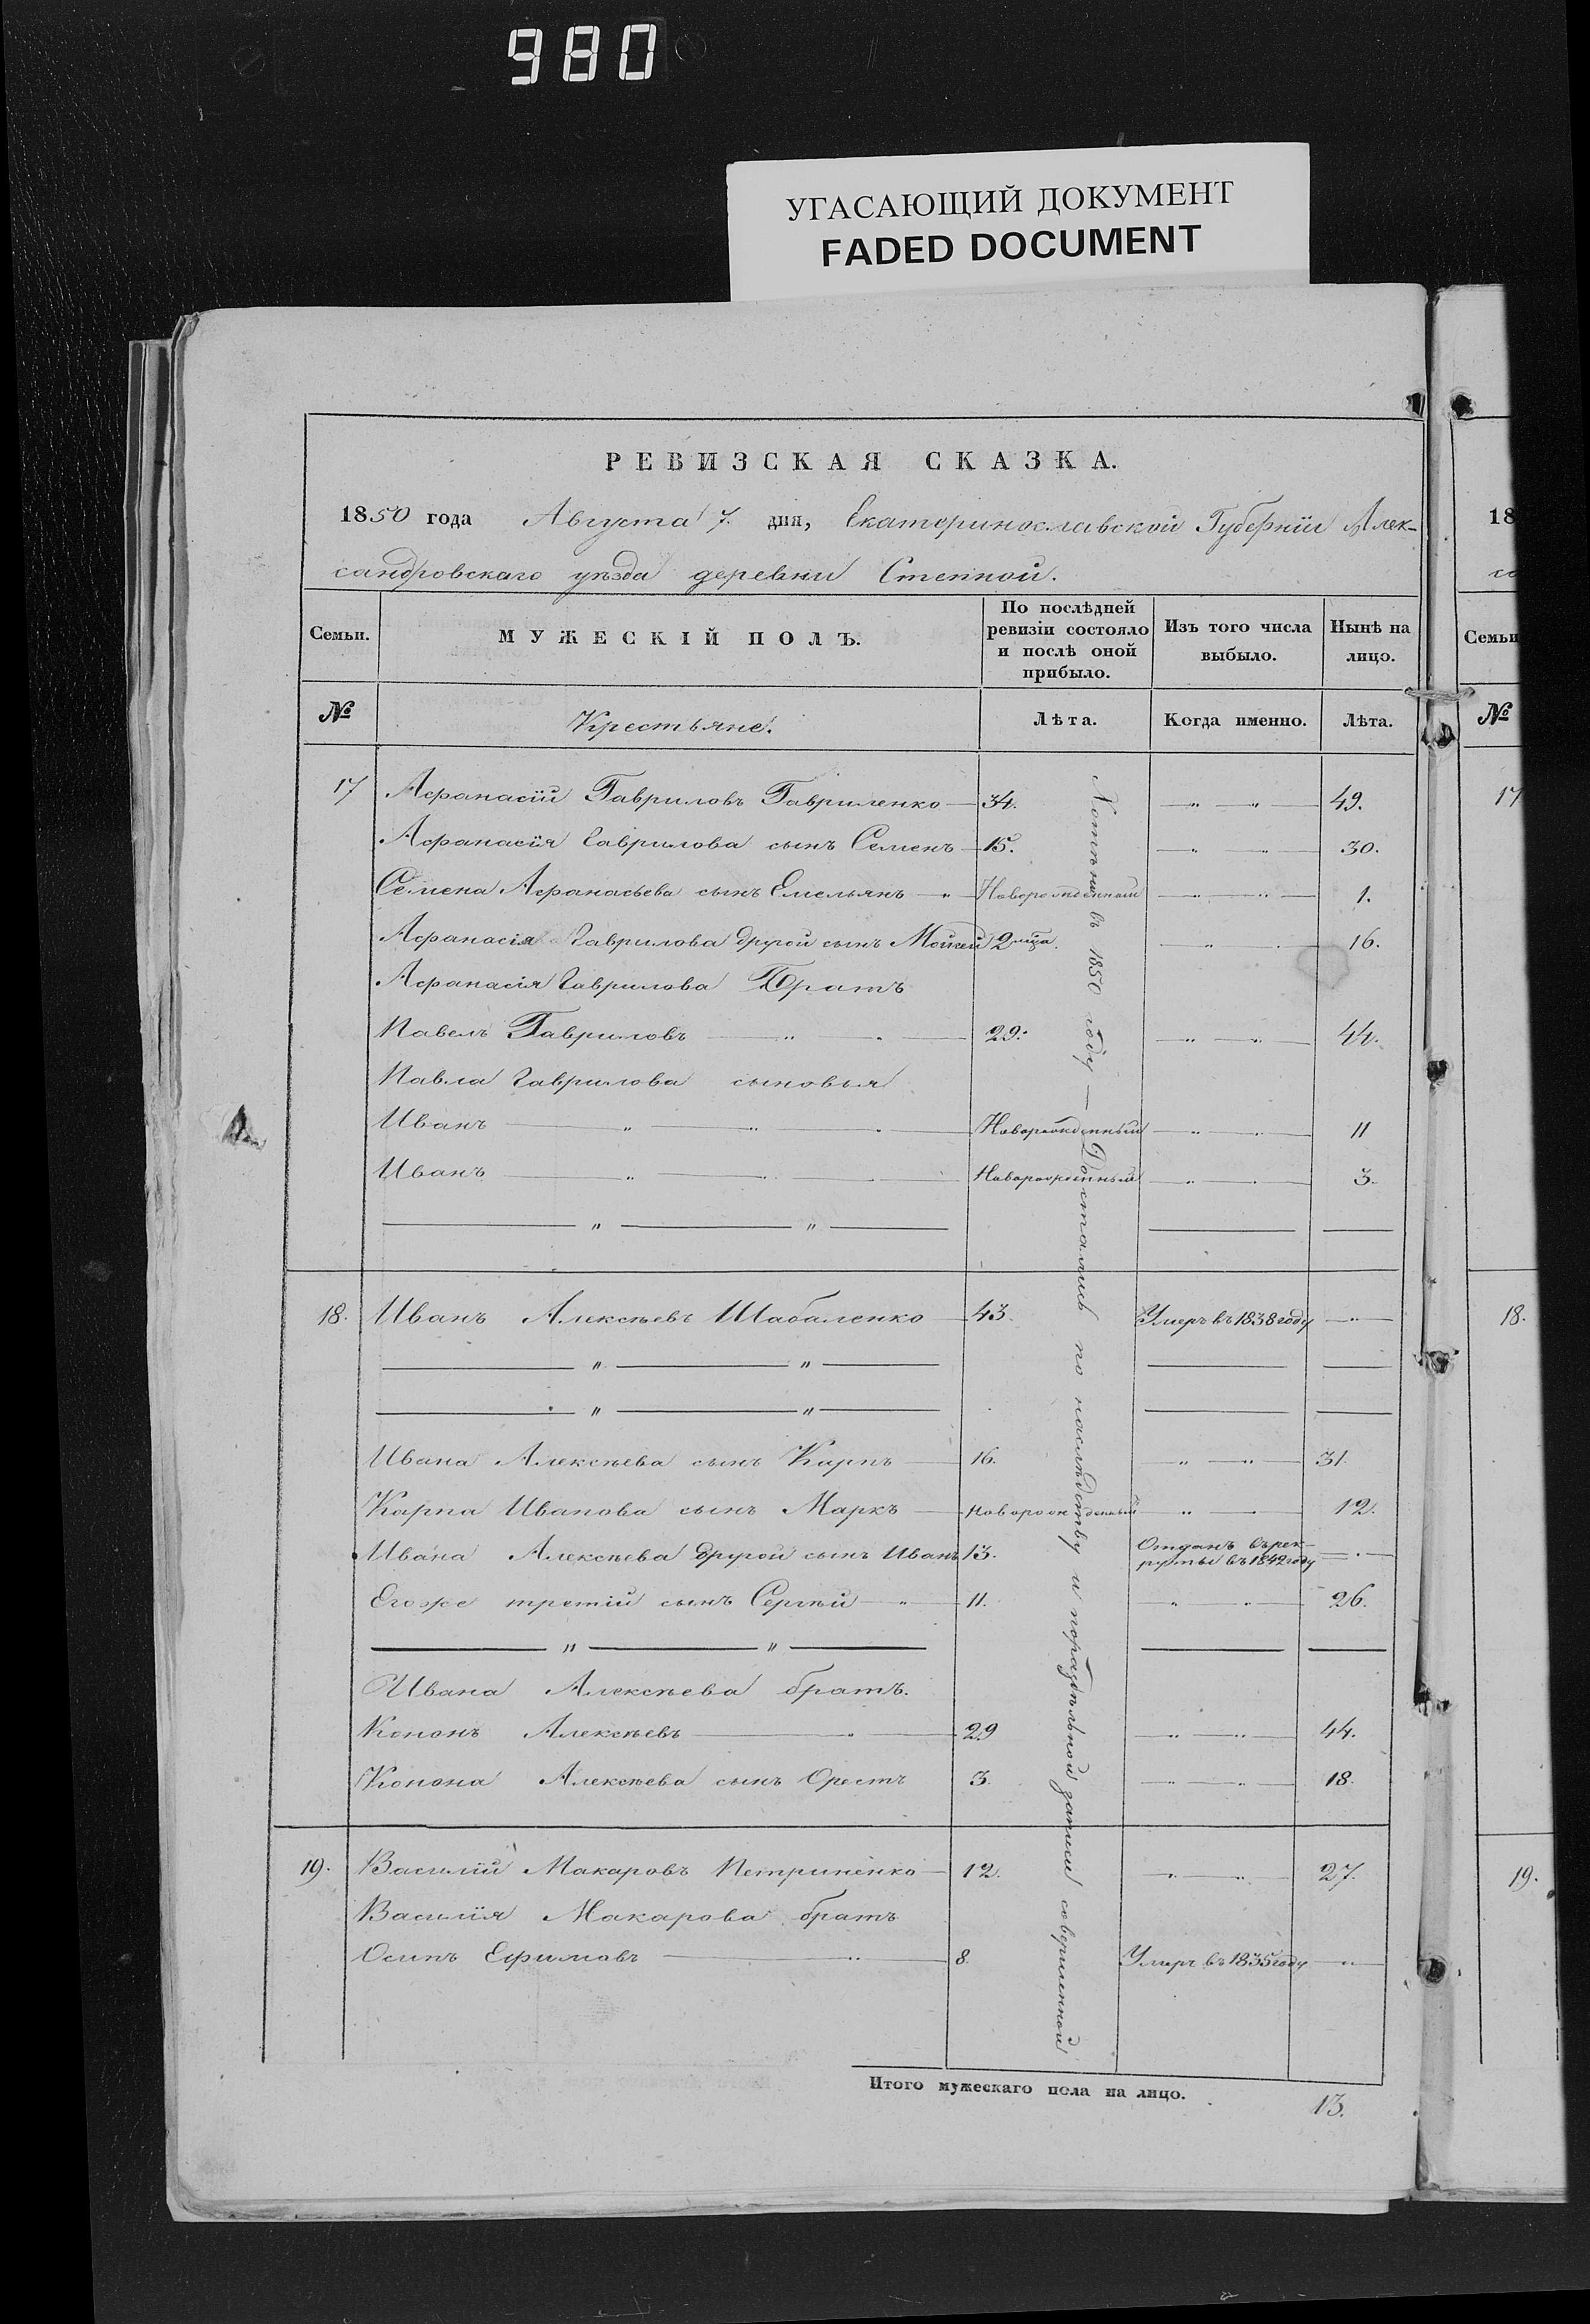 980
УГАСАЮЩИЙ ДОКУМЕНТ
FADED DOCUMENT
РЕВИЗСКАЯ СКАЗКА.
1850 года Августа 7. дня, Екатеринославской Губернiи Алек-
сандровскаго уѣзда деревни Степной.
Семьи. МУЖЕСКІЙ ПОЛЪ. По послѣдней ревизіи состояло и послѣ оной прибыло. Изъ того числа выбыло. Нынѣ на лицо.
№ Крестьяне. Лѣта. Когда именно. Лѣта.
17 Афанасiй Гавриловъ Гавриленко 34. 49.
Афанасiя Гаврилова сынъ Семенъ 15. 30.
Семена Афанасьева сынъ Емельянъ Новорожденный 1.
Афанасiя Гаврилова другой сынъ Мойсей 2 мѣсца. 16.
Афанасiя Гаврилова Братъ
Павелъ Гавриловъ 29. 44.
Павла Гаврилова сыновья
Иванъ Новорожденный 11
Иванъ Новорожденный 3.
18. Иванъ Алексѣевъ Шабаленко 43. Умеръ въ 1838 году
Ивана Алексѣева сынъ Карпъ 16. 31.
Карпа Иванова сынъ Маркъ новорожденный 12.
Ивана Алексѣева другой сынъ Иванъ 13. Отданъ въ рек-
руты въ 1842 году
Егоже третiй сынъ Сергѣй 11. 26.
Ивана Алексѣева братъ.
Кононъ Алексѣевъ 29 44.
Конона Алексѣева сынъ Орестъ 3. 18.
19. Василiй Макаровъ Петриненко 12. 27.
Василiя Макарова братъ
Осипъ Ефимовъ 8. Умеръ въ 1835 году
въ 1850 году — Достались по наслѣдству и по раздѣльной записи совершенной
Итого мужескаго пола на лицо. 13.
18
Семьи
№
17
18.
19.